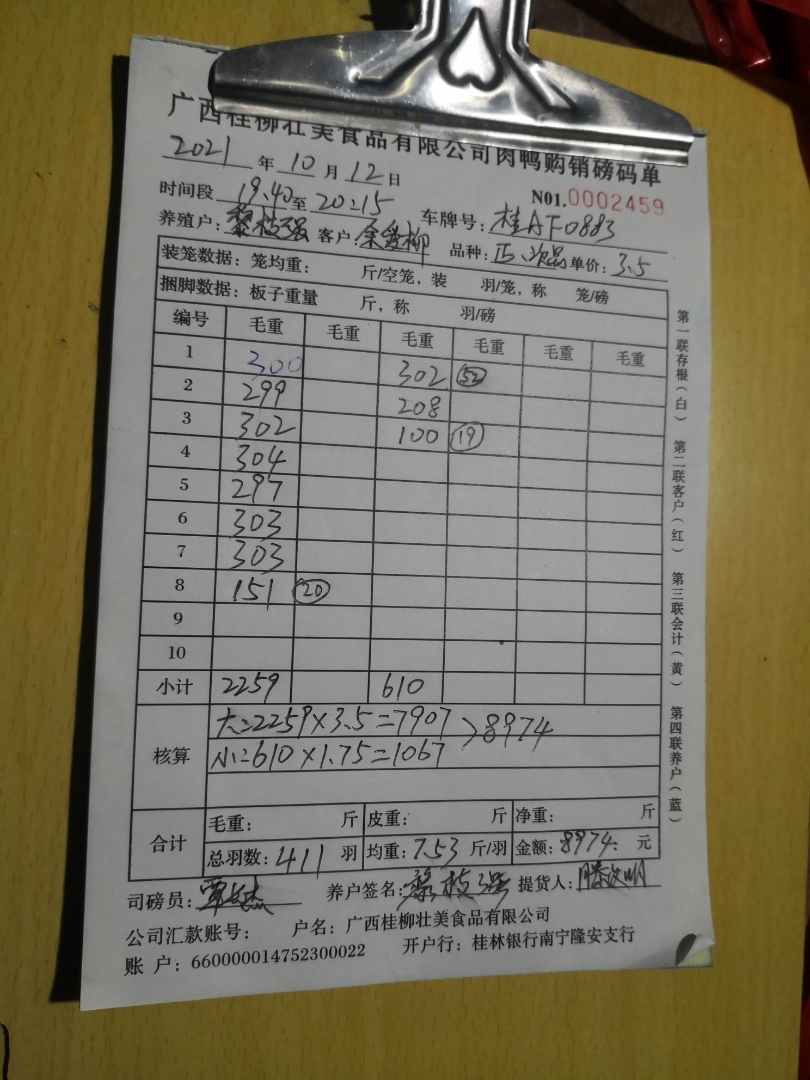 广西桂柳壮美食品有限公司肉鸭购销磅码单
2021 年 10 月 12 日
N01.0002459
时间段 19:40 至 20:15 车牌号: 桂AF0883
养殖户: 黎枝强 客户: 余爱柳 品种: 正、次品 单价: 3.5
装笼数据: 笼均重: 斤/空笼, 装 羽/笼, 称 笼/磅
捆脚数据: 板子重量 斤, 称 羽/磅
编号 毛重 毛重 毛重 毛重 毛重 毛重
1 300 302 52
2 299 208
3 302 100 19
4 304
5 297
6 303
7 303
8 151 20
9
10
小计 2259 610
核算 大:2259×3.5=7907 >8974
小:610×1.75=1067
合计 毛重: 斤 皮重: 斤 净重: 斤
总羽数: 411 羽 均重: 7.53 斤/羽 金额: 8974. 元
司磅员: 养户签名: 黎枝强 提货人:
公司汇款账号: 户名: 广西桂柳壮美食品有限公司
账 户: 660000014752300022 开户行: 桂林银行南宁隆安支行
第一联存根(白) 第二联客户(红) 第三联会计(黄) 第四联养户(蓝)